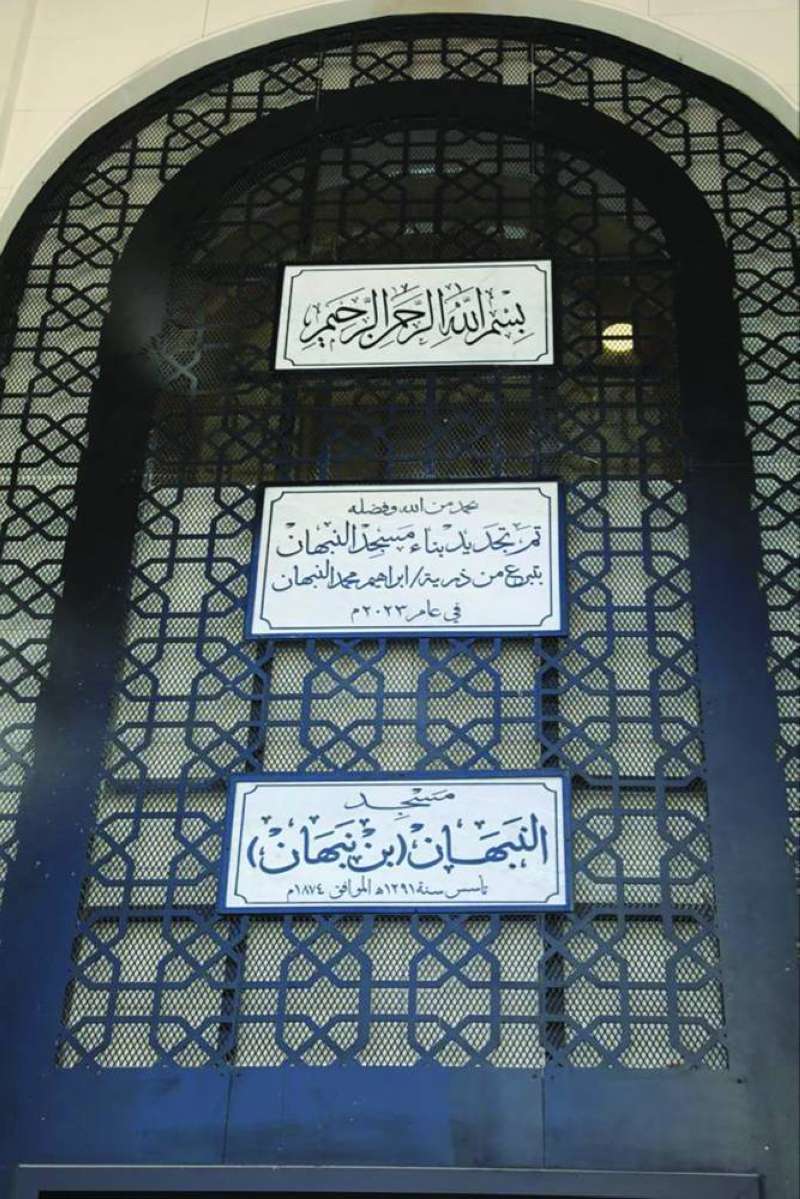 بِسْمِ اللهِ الرَّحْمٰنِ الرَّحِيْمِ
بحمد من الله وفضله
تم تجديد بناء مسجد النبهان
بتبرع من ذرية/ابراهيم محمد النبهان
في عام ٢٠٢٣م
مسجد
النبهان (بن نبهان)
تأسس سنة ١٢٩١ه الموافق ١٨٧٤م